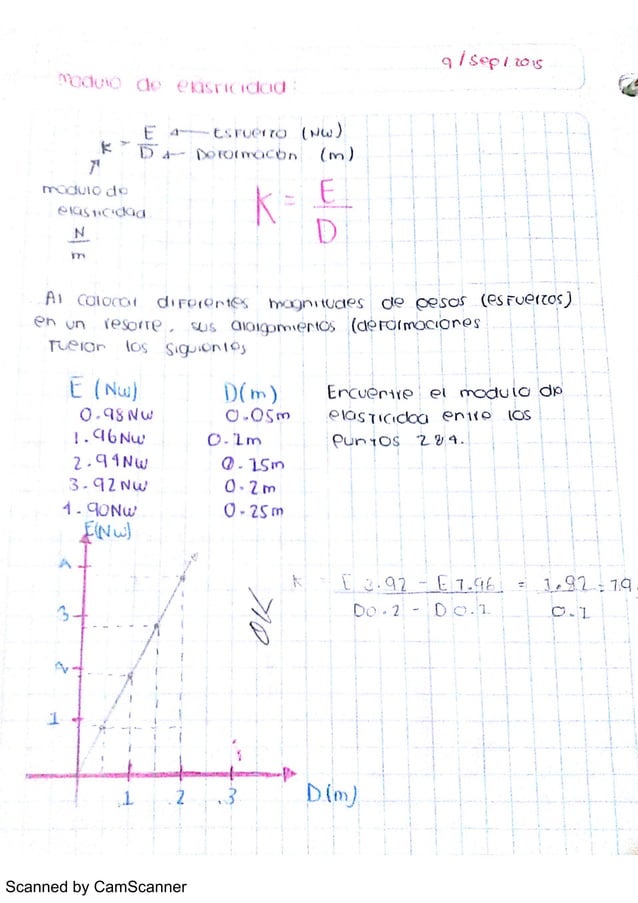 9/Sep/2015
Modulo de elasticidad:
K = E/D
E ← Esfuerzo (Nw)
D ← Deformación (m)
modulo de
elasticidad
N
m
K = E/D
Al colocar diferentes magnitudes de pesos (esfuerzos)
en un resorte, sus alargamientos (deformaciones
fueron los siguientes
E (Nw) D(m)
0.98 Nw 0.05m
1.96 Nw 0.1m
2.94 Nw 0.15m
3.92 Nw 0.2m
4.90 Nw 0.25m
Encuentre el modulo de
elasticidad entre los
puntos 2 y 4.
E(Nw)
4
3
2
1
.1 .2 .3 D(m)
OK
K = E 3.92 - E 1.96 = 1.92 = 19
D0.2 - D0.1 0.1
Scanned by CamScanner